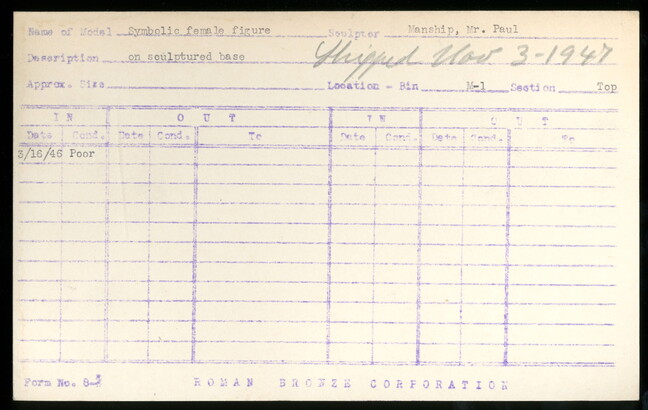 Name of Model Symbolic female figure Sculptor Manship, Mr. Paul
Description on sculptured base Shipped Nov 3-1947
Approx. Size Location - Bin M-1 Section Top
IN OUT IN OUT
Date Cond. Date Cond. To Date Cond. Date Cond. To
3/16/46 Poor
Form No. 8-3 ROMAN BRONZE CORPORATION